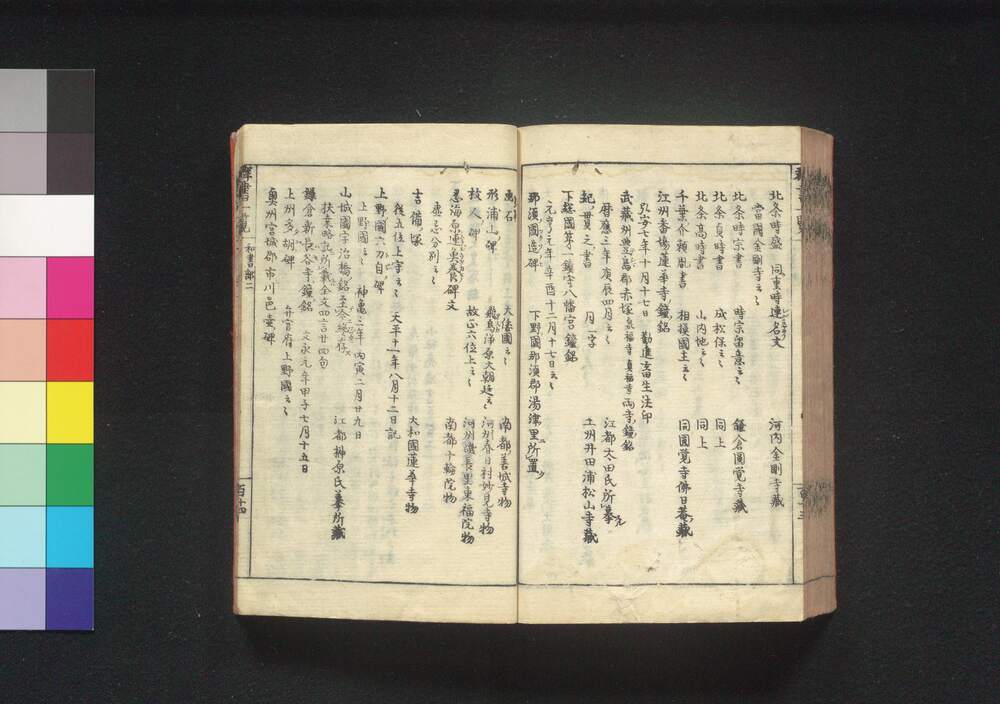 北条時盛 同裏時連名文 河内金剛寺蔵
當國金剛寺之々
北条時宗書 時宗留意之々 鎌倉圓覚寺蔵
北条貞時書 成松保之々 同上
北条高時書 山内地之々 同上
千葉介頼胤書 相摸國主之々 同圓覚寺佛日菴蔵
江州番場蓮華寺鐘銘
弘安七年十月十七日 勧進畜生法印
武蔵州豊島郡赤塚泉福寺真福寺両寺鐘銘
暦應三年庚辰四月之々 江都太田氏所摹
紀貫之書 月一字 土州井田浦松山寺蔵
下総國第一鎮守八幡宮鐘銘
元亨元年辛酉十二月十七日之々
那湏國造碑 下野國那湏郡湯津里所置
画石 大倭國之々 南都善城寺物
形浦山碑 飛鳥浄原大朝廷之々 河州春日村妙見寺物
故人碑 故正六位上之々 河州讃良里東福院物
忍海原連魚養碑文 南都十輪院物
虚忘分別之々
吉備塚 大和國蓮華寺物
従五位上守之々 天平十一年八月十二日記
上野國六刀自碑
上野國之々 神亀三年丙寅二月廿九日
山城國宇治橋銘至今絶存 江都榊原氏摹所蔵
扶桑略記所載全文四言廿四句
鎌倉新長谷寺鐘銘 文永元年甲子七月十五日
上州多胡碑 弁官府上野國之々
奥州宮城郡市川邑壷碑
群書一覧 和書部二
百十四